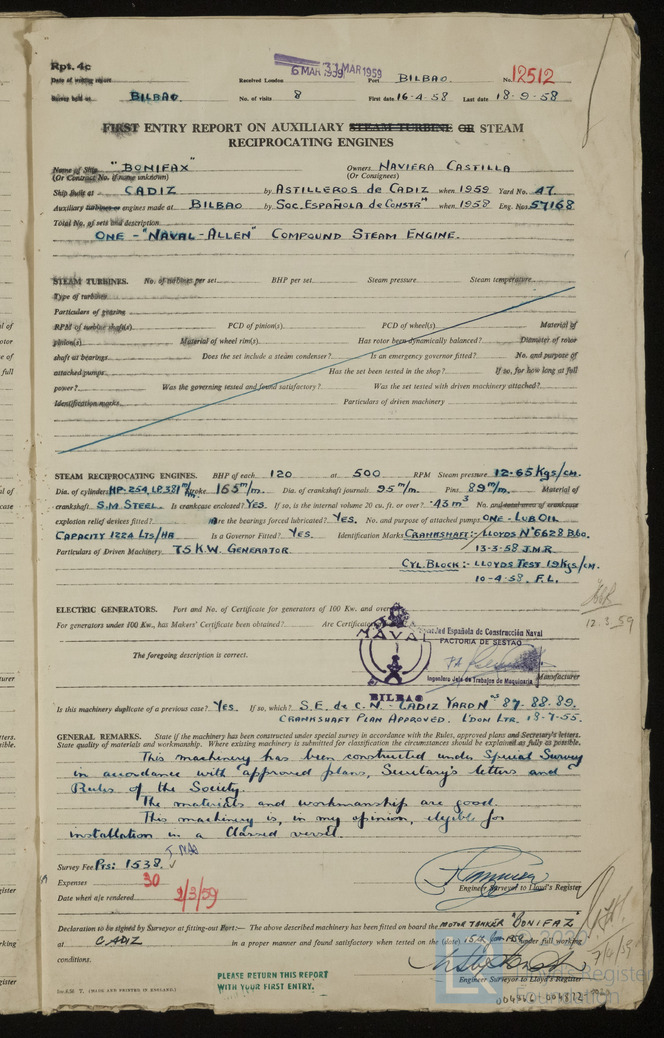 Rpt. 4c
6 MAR 1959 31 MAR 1959
Date of writing report Received London Port BILBAO. No. 12512
Survey held at BILBAO. No. of visits 8 First date 16-4-58 Last date 18-9-58
FIRST ENTRY REPORT ON AUXILIARY STEAM TURBINE OR STEAM
RECIPROCATING ENGINES
Name of Ship "BONIFAX" Owners NAVIERA CASTILLA
(Or Contract No. if name unknown) (Or Consignees)
Ship Built at CADIZ by ASTILLEROS de CADIZ when 1959 Yard No. 47
Auxiliary turbines or engines made at BILBAO by SOC. ESPAÑOLA de CONSTR" when 1958 Eng. Nos. 57168
Total No. of sets and description
ONE - "NAVAL-ALLEN" COMPOUND STEAM ENGINE.
STEAM TURBINES. No. of turbines per set BHP per set Steam pressure Steam temperature
Type of turbines
Particulars of gearing
RPM of turbine shaft(s) PCD of pinion(s) PCD of wheel(s) Material of
pinion(s) Material of wheel rim(s) Has rotor been dynamically balanced? Diameter of rotor
shaft at bearings Does the set include a steam condenser? Is an emergency governor fitted? No. and purpose of
attached pumps Has the set been tested in the shop? If so, for how long at full
power? Was the governing tested and found satisfactory? Was the set tested with driven machinery attached?
Identification marks Particulars of driven machinery
STEAM RECIPROCATING ENGINES. BHP of each 120 at 500 RPM Steam pressure 12.65 Kgs/cm.
Dia. of cylinders HP-254, LP.381 m/m. Stroke 165 m/m. Dia. of crankshaft journals 95 m/m. Pins 89 m/m. Material of
crankshaft S.M. STEEL. Is crankcase enclosed? YES. If so, is the internal volume 20 cu. ft. or over? .43 m³ No. and total area of crankcase
explosion relief devices fitted? Are the bearings forced lubricated? YES. No. and purpose of attached pumps ONE - LUB OIL
CAPACITY 1224 LTS/HR Is a Governor Fitted? YES. Identification Marks CRANKSHAFT:- LLOYDS Nº 6628 B.60.
Particulars of Driven Machinery 75 K.W. GENERATOR 13-3-58 J.M.R.
CYL. BLOCK:- LLOYDS TEST 19 Kgs/cm.
10-4-58. F.L.
12.3.59
ELECTRIC GENERATORS. Port and No. of Certificate for generators of 100 Kw. and over
For generators under 100 K.w., has Makers' Certificate been obtained? Are Certificates
NAVAL
BILBAO
Sociedad Española de Construcción Naval
FACTORIA DE SESTAO
The foregoing description is correct. PA
Ingeniero Jefe de Trabajos de Maquinaria Manufacturer
Is this machinery duplicate of a previous case? YES. If so, which? S.E. de C.N. - CADIZ YARD Nºs 87-88-89.
CRANKSHAFT PLAN APPROVED. L'DON LTR. 18-7-55.
GENERAL REMARKS. State if the machinery has been constructed under special survey in accordance with the Rules, approved plans and Secretary's letters.
State quality of materials and workmanship. Where existing machinery is submitted for classification the circumstances should be explained as fully as possible.
This machinery has been constructed under Special Survey
in accordance with approved plans, Secretary's letters and
Rules of the Society.
The materials and workmanship are good.
This machinery is, in my opinion, eligible for
installation in a Classed vessel.
Survey Fee Pts: 1538.
Expenses 30
Engineer Surveyor to Lloyd's Register
Date when a/c rendered 2/3/59
Declaration to be signed by Surveyor at fitting-out Port:— The above described machinery has been fitted on board the MOTOR TANKER "BONIFAZ"
at CADIZ in a proper manner and found satisfactory when tested on the (date) 15th Jan 1959 under full working
conditions.
7/4/59
Engineer Surveyor to Lloyd's Register
PLEASE RETURN THIS REPORT
WITH YOUR FIRST ENTRY.
(MADE AND PRINTED IN ENGLAND.)
LR
Lloyd's Register
Foundation